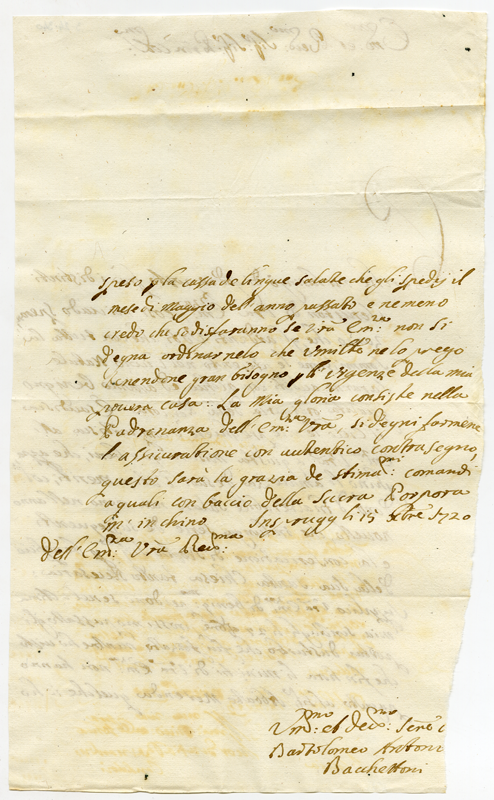 speso p la cassa de lingue salate che gli spedÿ il
mese di Maggio dell'anno passato e nemeno
credo che sodisfaranno se Vrã Em:za non si
degna ordinarnelo che Umilto nelo prego
tenendone gran bisogno p l' Urgenze della mia
povera casa: La Mia gloria consiste nella
Padronanza dell'Em:za Vrã, si degni formene
l'assicuratione con autentico contrasegno,
questo sarà la grazia de stimat:mi comandi
a quali con baccio della Sacra Porpora
m' inchino Inspruggh li 15 Xbre 1720
Dell' Em:za Vrã Rev:ma
Um:mo et Dev:mo Serre
Bartolomeo Antoni
Bacchettoni